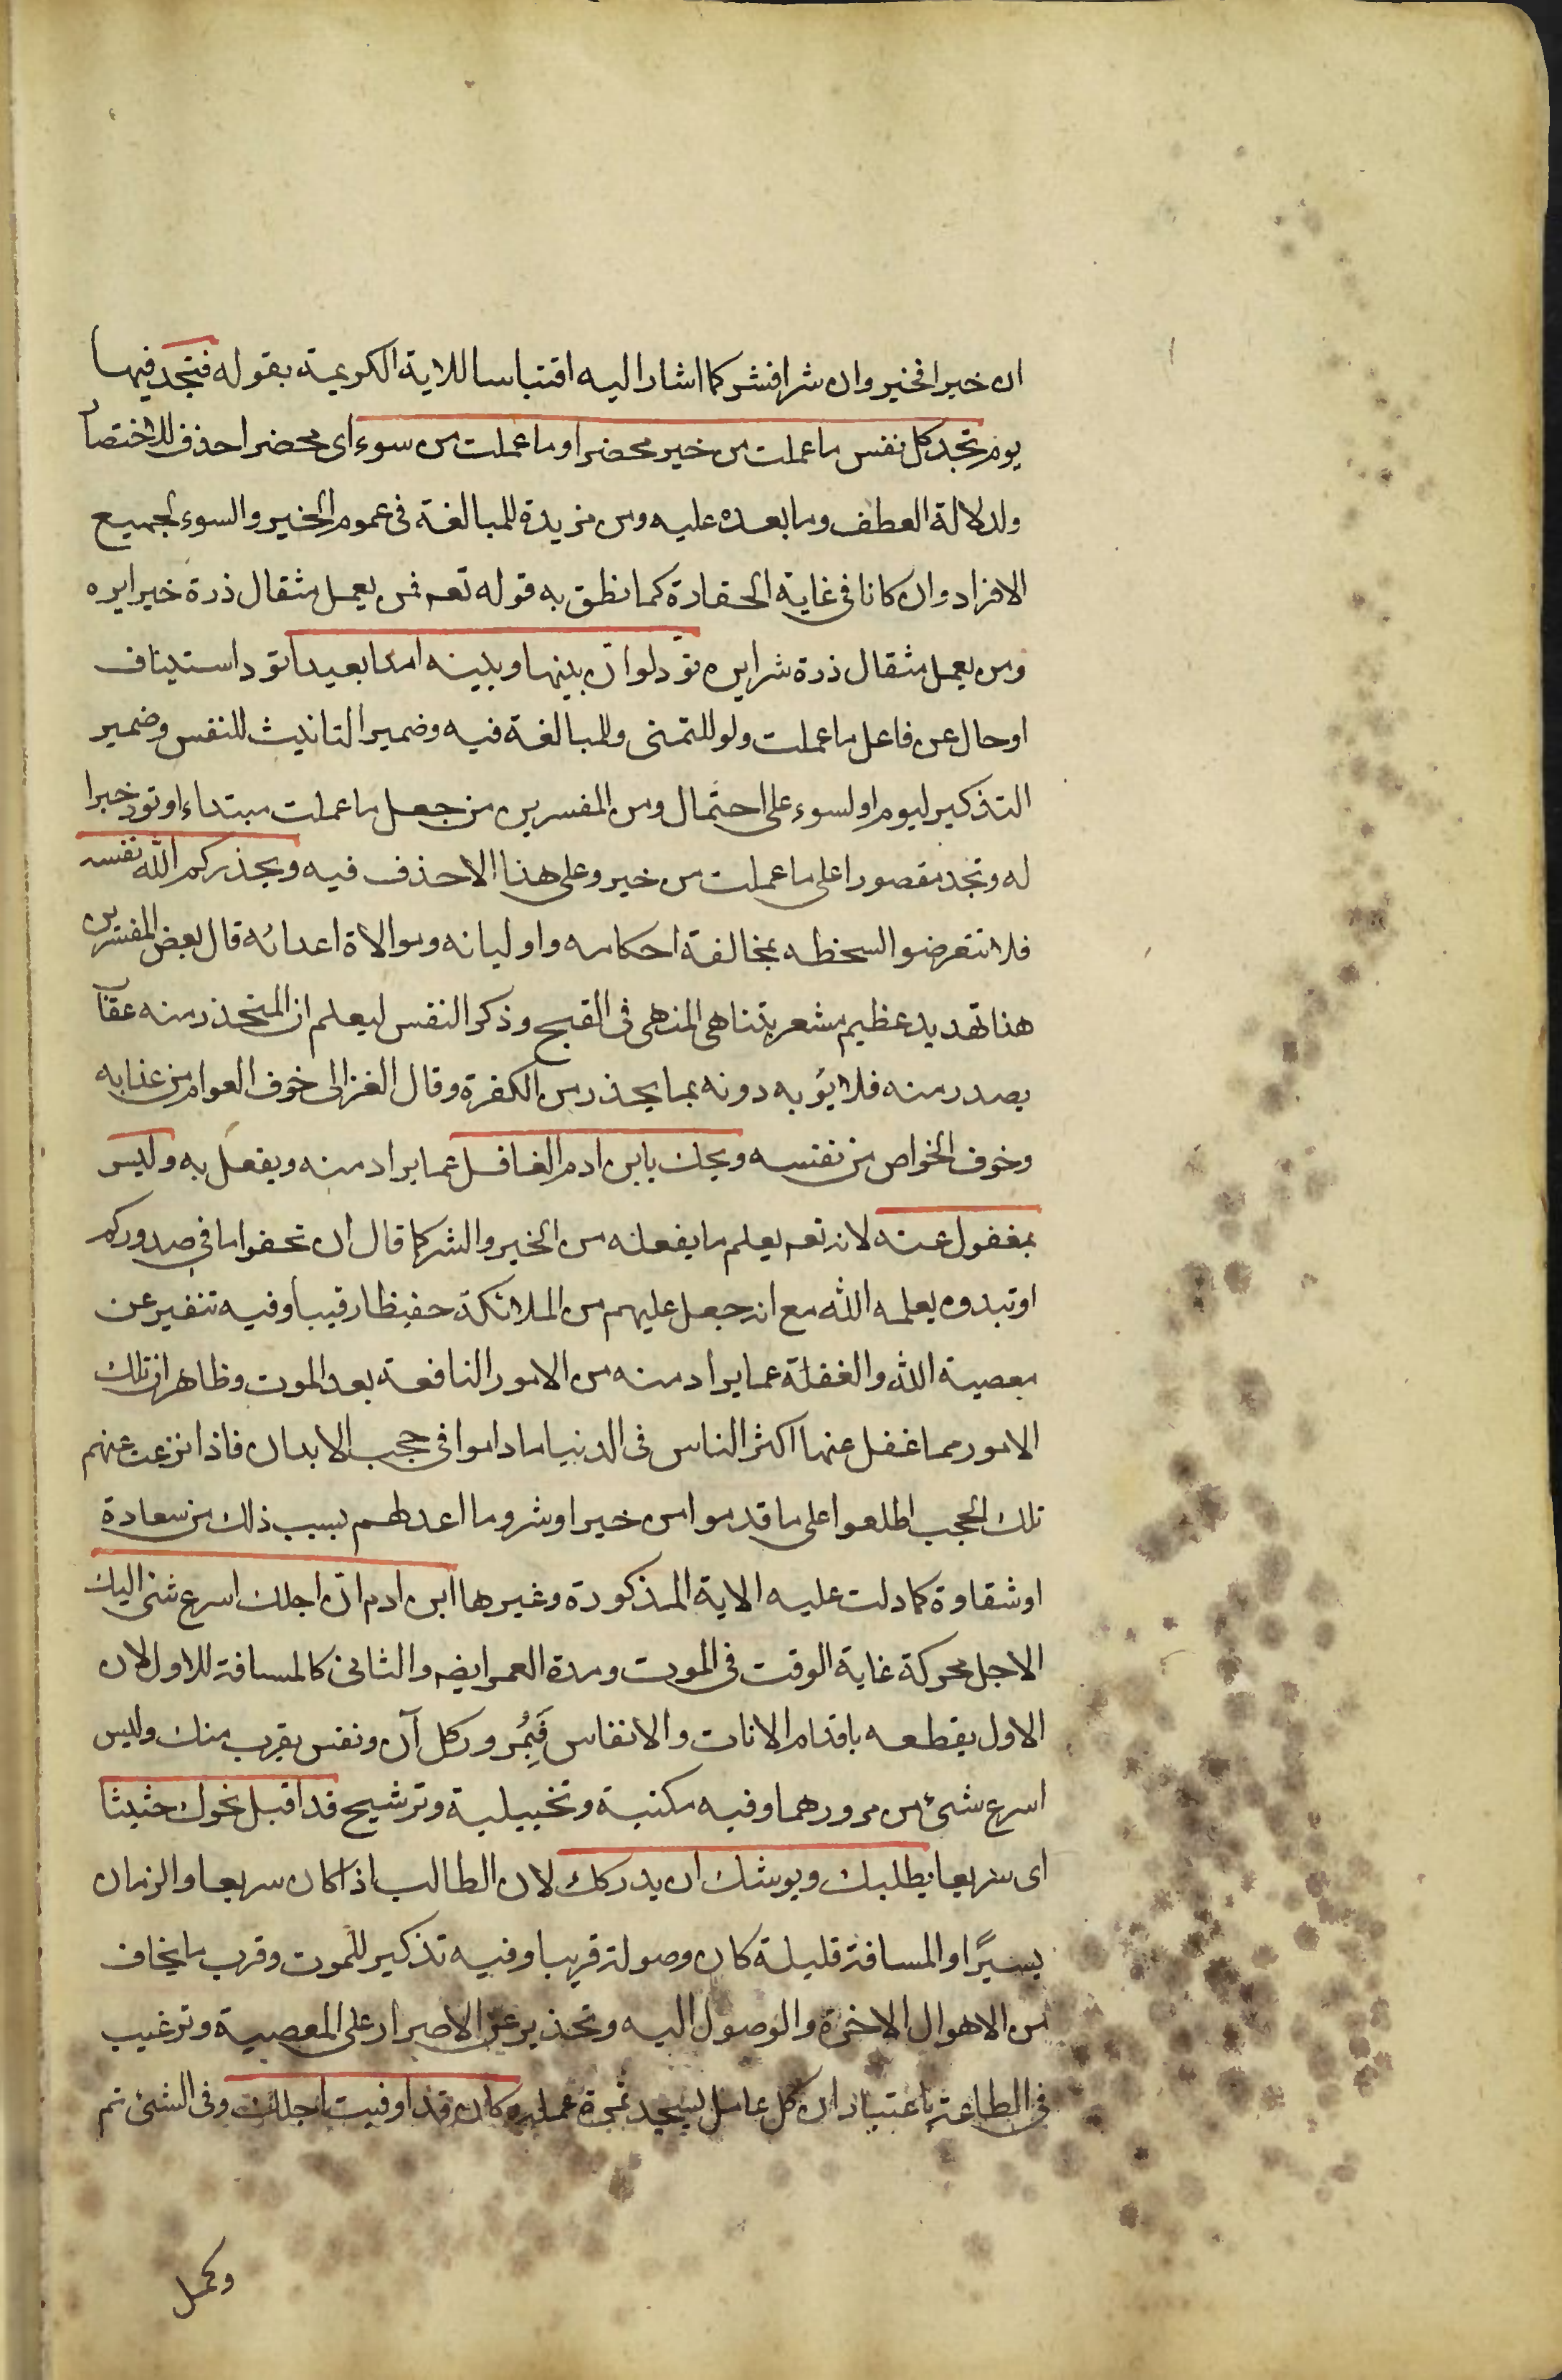 ان خيرا فخير وان شرا فشر كما اشار اليه اقتباسا للاية الكريمة بقوله فتجد فيها
يوم تجد كل نفس ما عملت من خير محضرا وما عملت من سوء اى محضرا حذف للاختصا
ولدلالة العطف وما بعده عليه ومن مزيدة للمبالغة فى عموم الخير والسوء لجميع
الافراد وان كانا فى غاية الحقارة كما نطق به قوله تعه فمن يعمل مثقال ذرة خيرا يره
ومن يعمل مثقال ذرة شرا يره تود لو ان بينها وبينه امدا بعيدا تود استيناف
او حال عن فاعل ما عملت ولو للتمنى وللمبالغة فيه وضمير التانيث للنفس وضمير
التذكير ليوم او لسوء على احتمال ومن المفسرين من جعل ما عملت مبتداء او تود خبرا
له وتجد مقصورا على ما عملت من خير وعلى هذا الا حذف فيه ويحذركم الله نفسه
فلا تتعرضوا لسخطه بمخالفة احكامه واوليائه وموالاة اعدائه قال بعض المفسرين
هذا تهديد عظيم مشعر بتناهى المنهى فى القبح وذكر النفس ليعلم ان المتحذر منه عقاب
يصدر منه فلا يؤبه دونه بما يحذر من الكفرة وقال الغزالى خوف العوام من عذابه
وخوف الخواص من نفسه ويحك يابن ادم الغافل عما يراد منه ويفعل به وليس
بمغفول عنه لانه تعه يعلم ما يفعله من الخير والشر كما قال ان تخفوا ما فى صدوركم
او تبدوه يعلمه الله مع انه جعل عليهم من الملائكة حفيظا رقيبا وفيه تنفير عن
معصية الله والغفلة عما يراد منه من الامور النافعة بعد الموت وظاهر ان تلك
الامور مما غفل عنها اكثر الناس فى الدنيا ما داموا فى حجب الابدان فاذا نزعت عنهم
تلك الحجب اطلعوا على ما قدموا من خير او شر وما اعد لهم بسبب ذلك من سعادة
او شقاوة كما دلت عليه الاية المذكورة وغيرها ابن ادم ان اجلك اسرع شئ اليك
الاجل محركة غاية الوقت فى الموت ومدة العمر ايضه والثانى كالمسافة للاول لان
الاول يقطعه باقدام الانات والانفاس فَبِمُرور كل آن ونفس يقرب منك وليس
اسرع شئ من مرورهما وفيه مكنية وتخييلية وترشيح قد اقبل نحوك حثيثا
اى سريعا يطلبك ويوشك ان يدركك لان الطالب اذا كان سريعا والزمان
يسيرًا والمسافة قليلة كان وصوله قريبا وفيه تذكير للموت وقرب ما يخاف
من الاهوال الاخرة والوصول اليه وتحذير عن الاصرار على المعصية وترغيب
فى الطاعة باعتبار ان كل عامل سيجد ثمرة عمله وكان قد اوفيت اجلك وفى الشئ تم
وكمل